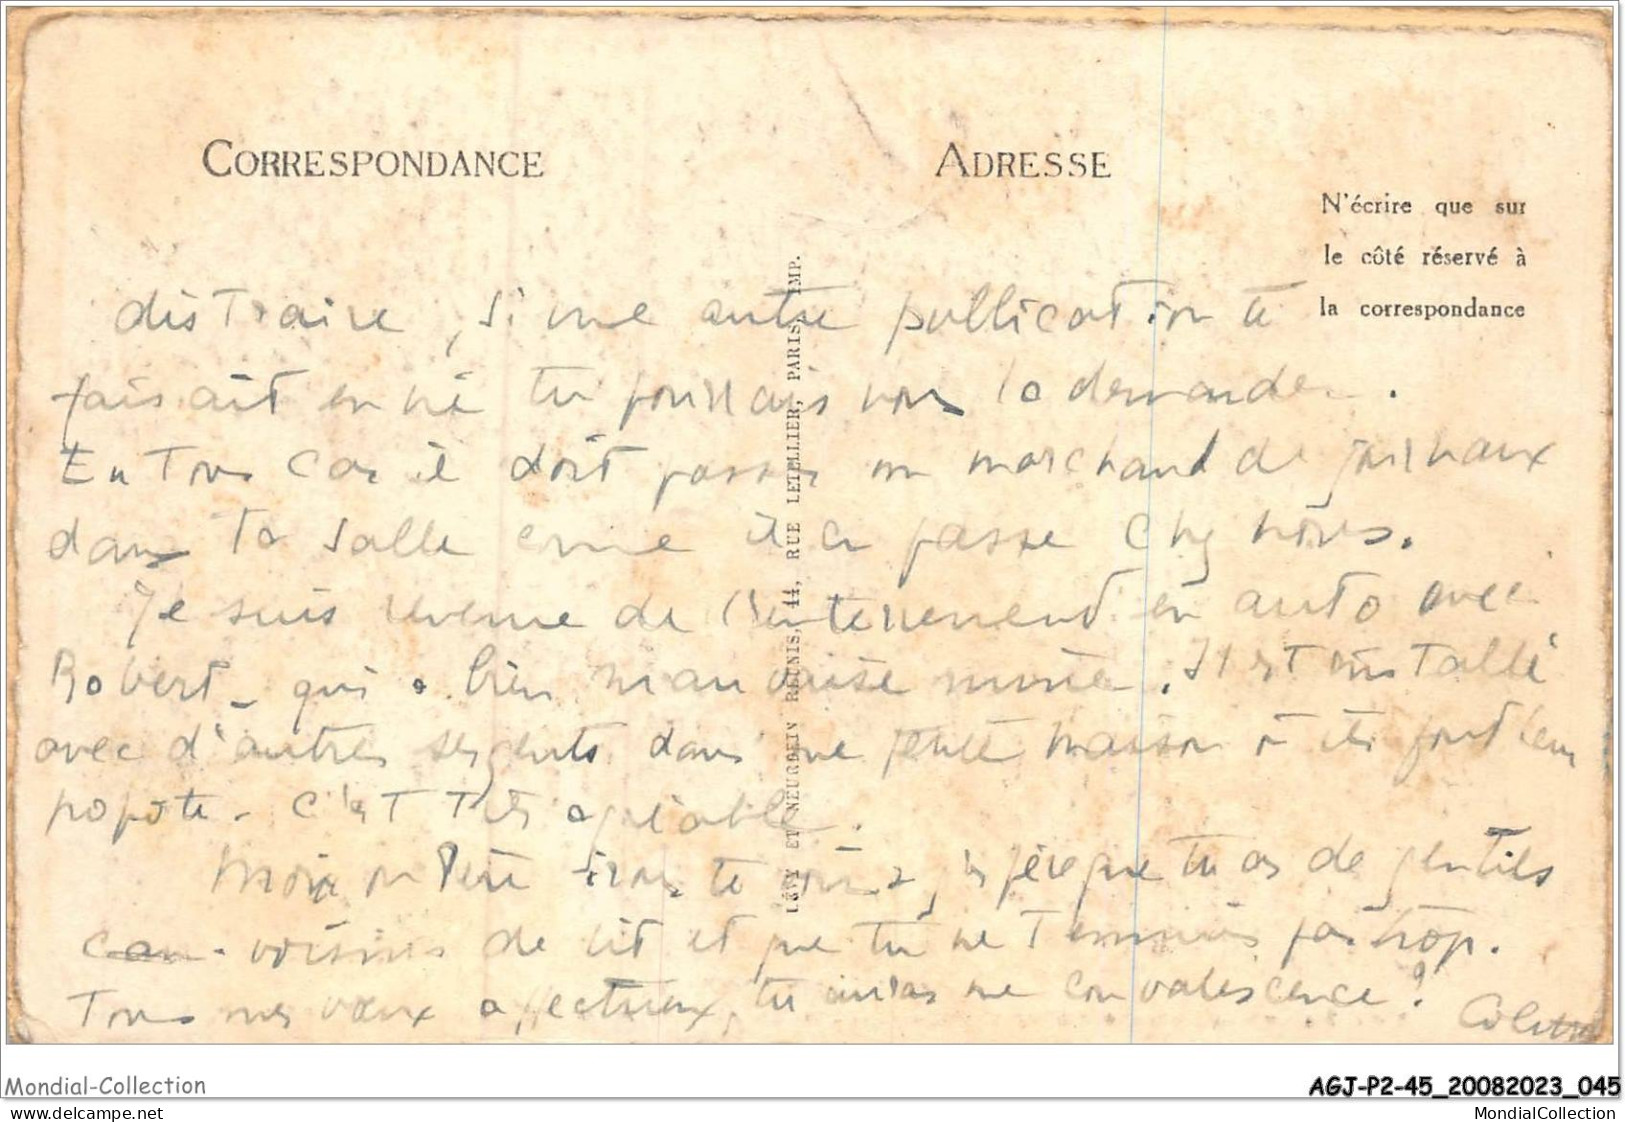 CORRESPONDANCE
ADRESSE
N'écrire que sur
le côté réservé à
la correspondance
LÉVY ET NEURDEIN RÉUNIS, 44, RUE LETELLIER, PARIS, IMP.
distraire, si une autre publication te
faisait envie tu pourrais nous la demander.
En tous cas il doit passer un marchand de journaux
dans ta salle comme il en passe chez nous.
Je suis revenue de l'enterrement en auto avec
Robert - qui a bien mauvaise mine. Il est installé
avec d'autres sergents dans une petite maison où ils font leur
popote - c'est très agréable.
Moi ou Père irons te voir, j'espère que tu as de gentils
voisins de lit et que tu ne t'ennuies pas trop.
Tous mes vœux affectueux, tu auras une convalescence?
Colette
Mondial-Collection
AGJ-P2-45_20082023_045
delcampe.net
MondialCollection